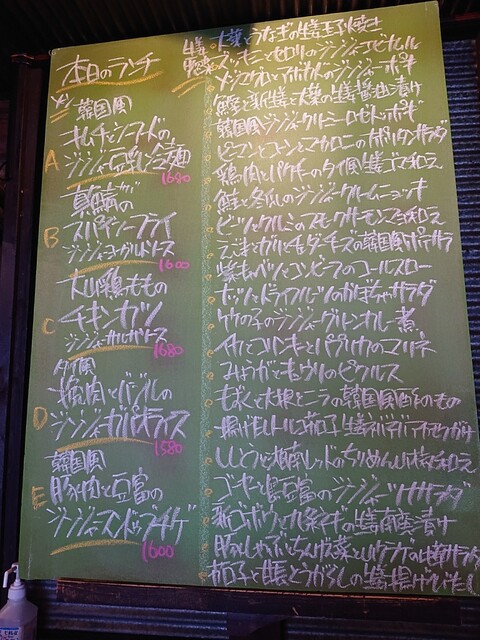 本日のランチ
韓国風
オムチとシラードの
A ジンジャー豆乳冷麺
1680
真鯛の
B スパイシーフライ
ジンジャーヨーグルトソース
1600
大山鶏ももの
C チキンカツ
ジンジャーサルサソース
1680
タイ風
挽肉とバジルの
D ジンジャーガパオライス
1580
韓国風
E 豚肉と豆富の
ジンジャースンドゥブチゲ
1600
生姜
大葉とうなぎの生姜玉子焼き
ズッキーニとセロリのジンジャーエビナムル
メジマグロとアボカドのジンジャーポキ
大葉の生姜醤油漬け
韓国風ジンジャークリーミーロゼトッポギ
ピーマンとコーンとマカロニのナポリタンサラダ
鶏肉とパクチーのタイ風生姜ゴマ和え
鮭と冬瓜のジンジャークリームニョッキ
ビーツとクルミのスモークサーモン
チーズの韓国風ポテサラ
紫キャベツとコンビーフのコールスロー
ナッツとドライフルーツのかぼちゃサラダ
タケノコのジンジャーグリーンカレー煮
イカとコリンキーとパプリカのマリネ
みょうがとキュウリのピクルス
もやしと大根とニラの韓国風酢のもの
揚げ出しトルコ茄子
ししとうと湘南レッドのちりめん山椒和え
ゴーヤと島豆富のジンジャーツナサラダ
新ゴボウと九条ネギの生姜南蛮漬け
豚しゃぶと
茄子と甘長とうがらしの生姜揚げびたし